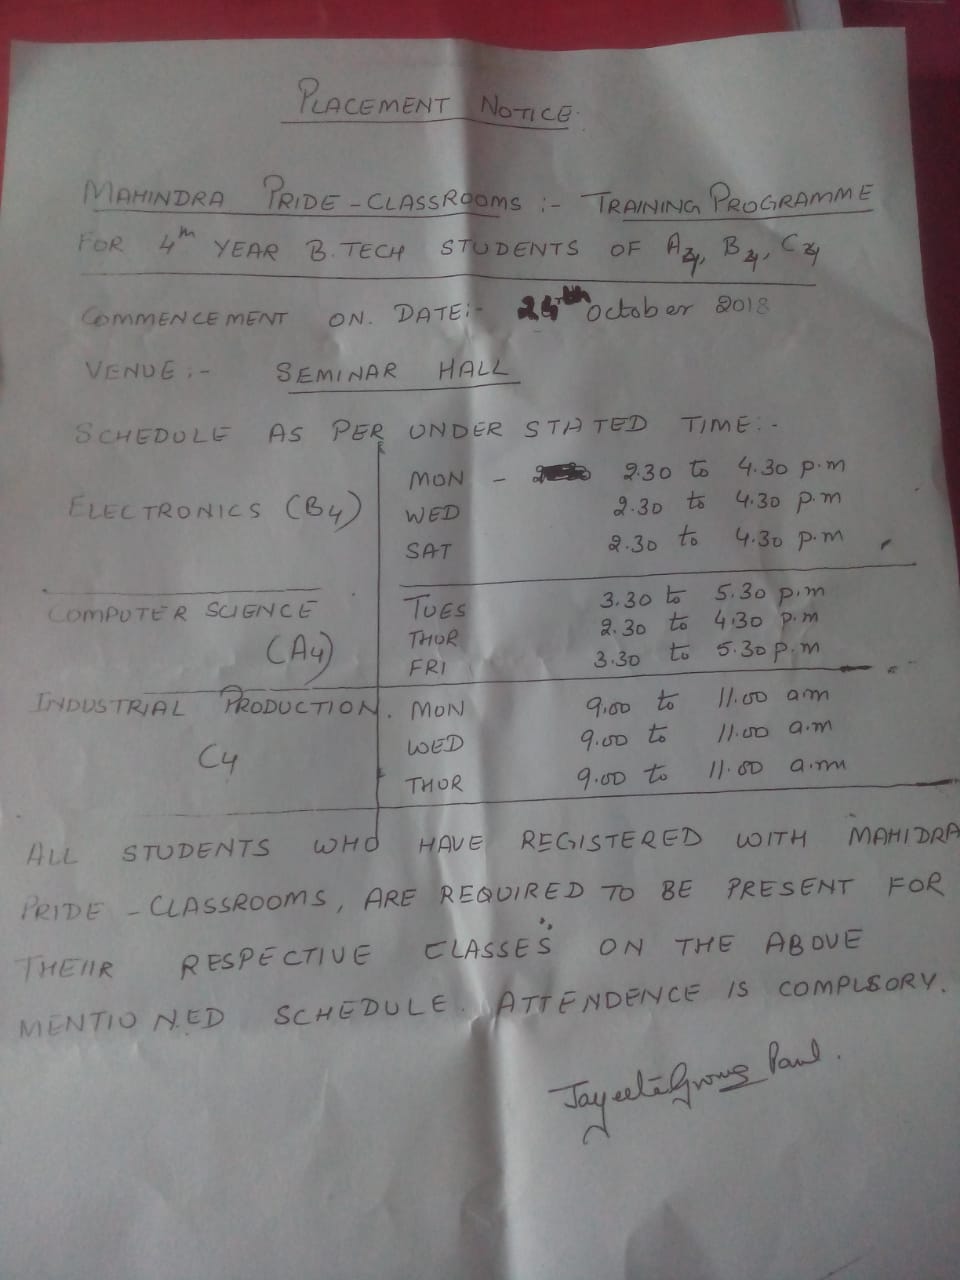 PLACEMENT NOTICE.
MAHINDRA PRIDE - CLASSROOMS :- TRAINING PROGRAMME
FOR 4th YEAR B.TECH STUDENTS OF A4, B4, C4
COMMENCEMENT ON. DATE:- 24th October 2018
VENUE :- SEMINAR HALL
SCHEDULE AS PER UNDER STATED TIME:-
ELECTRONICS (B4)
MON - 2.30 to 4.30 p.m
WED 2.30 to 4.30 p.m
SAT 2.30 to 4.30 p.m
COMPUTER SCIENCE
(A4)
TUES 3.30 to 5.30 p.m
THUR 2.30 to 4.30 p.m
FRI 3.30 to 5.30 p.m
INDUSTRIAL PRODUCTION.
C4
MON 9.00 to 11.00 am
WED 9.00 to 11.00 a.m
THUR 9.00 to 11.00 a.m
ALL STUDENTS WHO HAVE REGISTERED WITH MAHIDRA
PRIDE - CLASSROOMS, ARE REQUIRED TO BE PRESENT FOR
THEIR RESPECTIVE CLASSES ON THE ABOVE
MENTIONED SCHEDULE. ATTENDENCE IS COMPLSORY.
Paul.